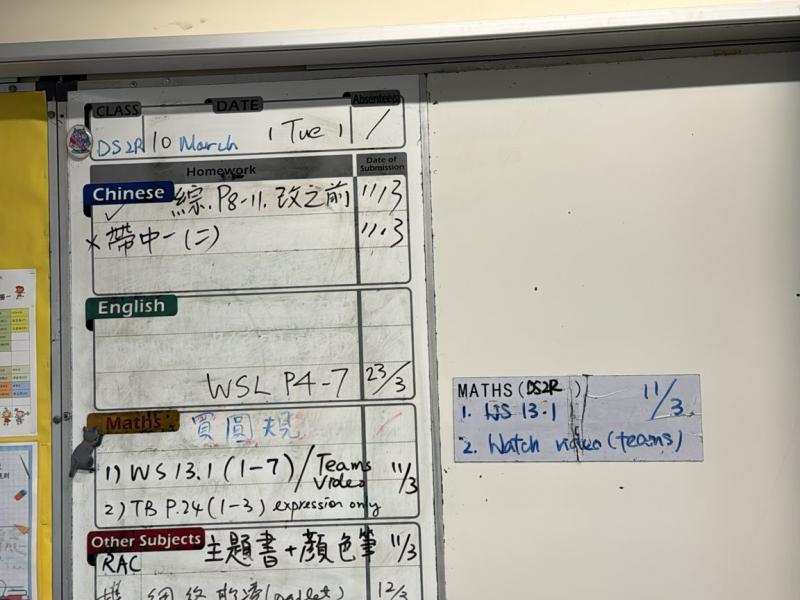 CLASS DATE Absentees
DS2R 10 March (Tue) /
Homework Date of Submission
Chinese ✓ 綜.P8-11.改之前 11/3
x 帶中一(二) 11.3
English
WSL P4-7 23/3
Maths 買圓規
1) WS 13.1 (1-7) / Teams Video 11/3
2) TB P.24 (1-3) expression only
Other Subjects 主題書+顏色筆 11/3
RAC
網絡 (padlet) 12/3
MATHS (DS2R) 11/3
1. WS 13.1
2. Watch video (teams)